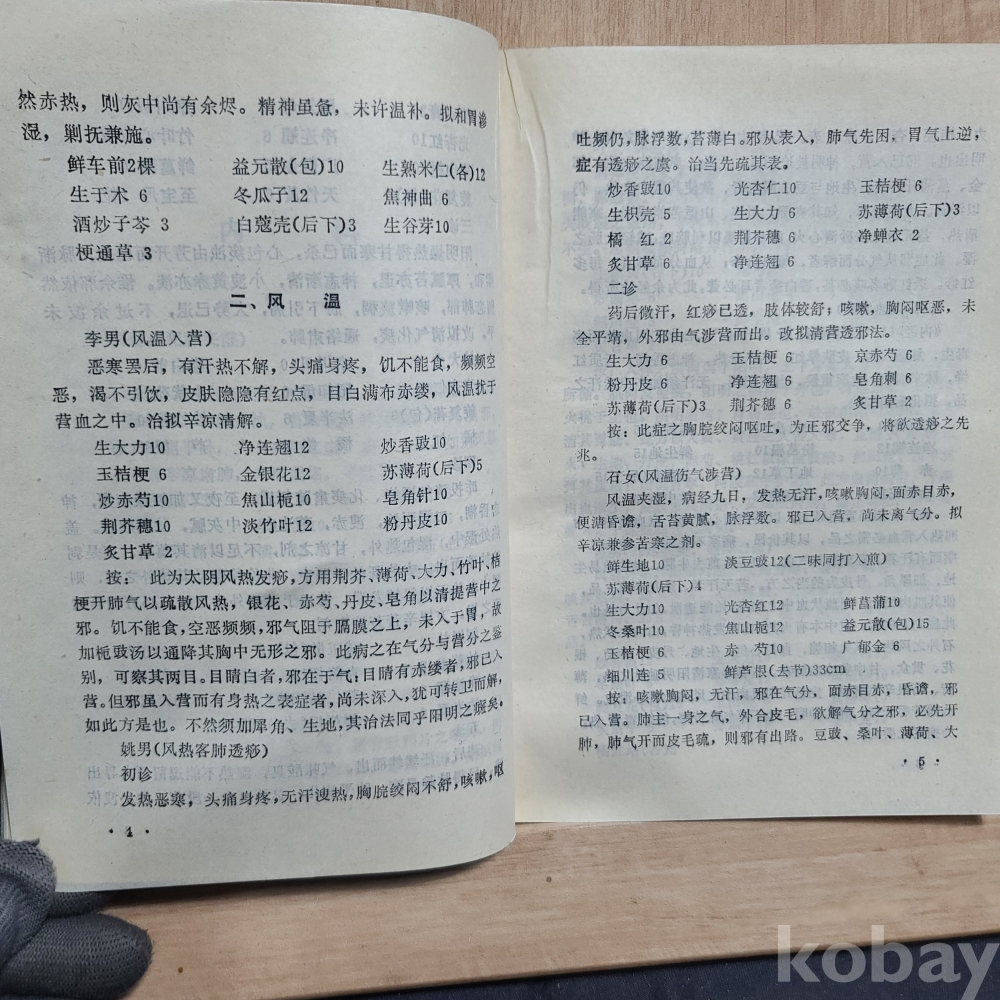 然赤热，则灰中尚有余烬。精神虽惫，未许温补。拟和胃渗
湿，剿抚兼施。
鲜车前2棵 益元散(包)10 生熟米仁(各)12
生于术 6 冬瓜子12 焦神曲 6
酒炒子芩 3 白蔻壳(后下)3 生谷芽10
梗通草 3
二、风 温
李男(风温入营)
恶寒罢后，有汗热不解，头痛身疼，饥不能食，频频空
恶，渴不引饮，皮肤隐隐有红点，目白满布赤缕，风温扰于
营血之中。治拟辛凉清解。
生大力10 净连翘12 炒香豉10
玉桔梗 6 金银花12 苏薄荷(后下)5
炒赤芍10 焦山栀10 皂角针10
荆芥穗10 淡竹叶12 粉丹皮10
炙甘草 2
按：此为太阴风热发痧，方用荆芥、薄荷、大力、竹叶、桔
梗开肺气以疏散风热，银花、赤芍、丹皮、皂角以清提营中之
邪。饥不能食，空恶频频，邪气阻于膈膜之上，未入于胃，故
加栀豉汤以通降其胸中无形之邪。此病之在气分与营分之鉴
别，可察其两目。目睛白者，邪在于气；目睛有赤缕者，邪已入
营。但邪虽入营而有身热之表症者，尚未深入，犹可转卫而解，
如此方是也。不然须加犀角、生地，其治法同乎阳明之癍矣。
姚男(风热客肺透痧)
初诊
发热恶寒，头痛身疼，无汗溲热，胸脘绞闷不舒，咳嗽，呕
·4·
吐频仍，脉浮数，苔薄白。邪从表入，肺气先困，胃气上逆，
症有透痧之虞。治当先疏其表。
炒香豉10 光杏仁10 玉桔梗 6
生枳壳 5 生大力 6 苏薄荷(后下)3
橘 红 2 荆芥穗 6 净蝉衣 2
炙甘草 6 净连翘 6
二诊
药后微汗，红痧已透，肢体较舒；咳嗽，胸闷呕恶，未
全平靖，外邪由气涉营而出。改拟清营透邪法。
生大力 6 玉桔梗 6 京赤芍 6
粉丹皮 6 净连翘 6 皂角刺 6
苏薄荷(后下)3 荆芥穗 6 炙甘草 2
按：此症之胸脘绞闷呕吐，为正邪交争，将欲透痧之先
兆。
石女(风温伤气涉营)
风温夹湿，病经九日，发热无汗，咳嗽胸闷，面赤目赤，
便溏昏谵，舌苔黄腻，脉浮数。邪已入营，尚未离气分。拟
辛凉兼参苦寒之剂。
鲜生地10 淡豆豉12(二味同打入煎)
苏薄荷(后下)4
生大力10 光杏红12 鲜菖蒲10
冬桑叶10 焦山栀12 益元散(包)15
玉桔梗 6 赤 芍10 广郁金 6
细川连 5 鲜芦根(去节)33cm
按：咳嗽胸闷，无汗，邪在气分，面赤目赤，昏谵，邪
已入营。肺主一身之气，外合皮毛，欲解气分之邪，必先开
肺，肺气开而皮毛疏，则邪有出路。豆豉、桑叶、薄荷、大
·5·
kobay